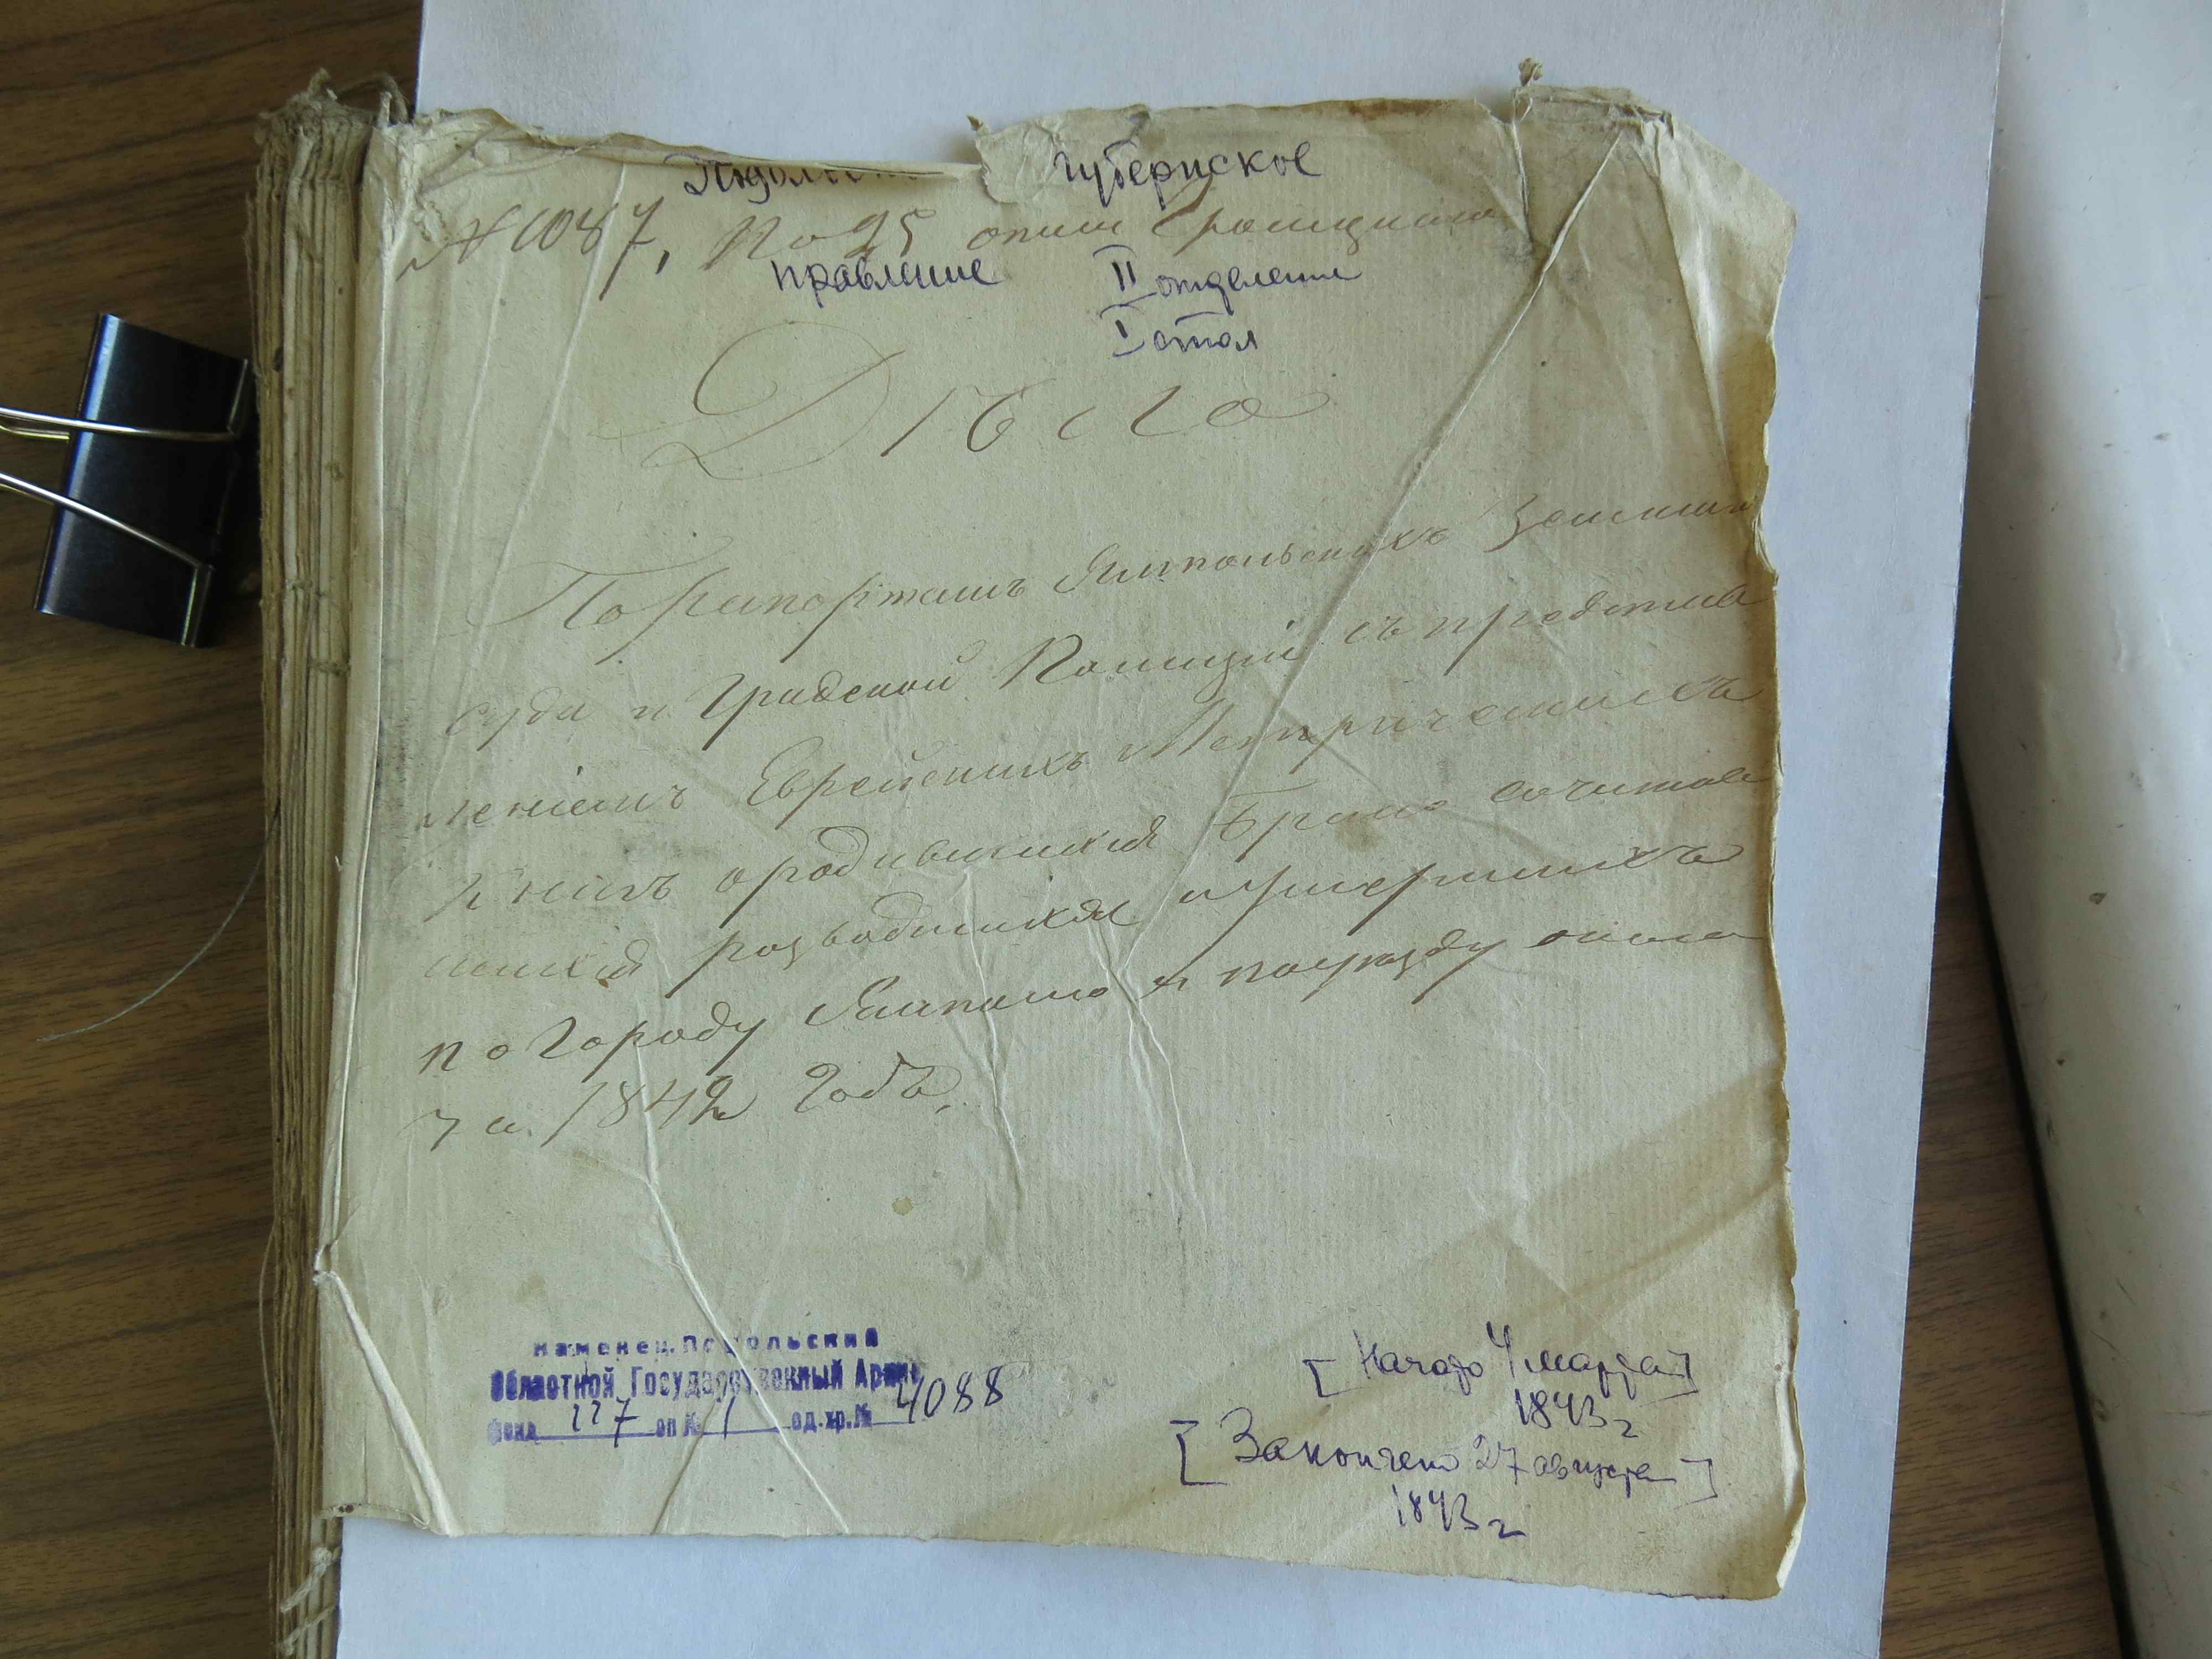 губернское
№ 1087, По 95 описи
правление II отделение
I стол
Дѣло
По рапортамъ Ямпольскихъ Земскаго
суда и Градской Полиціи съ представ
леніемъ Еврейскихъ Метрическихъ
Книгъ о родившихся Бракомъ сочитав
шихся разводшихся и умершихъ
по Городу Ямполю и по уезду онаго
за 1842 Годъ.
Каменец.Подольский
Областной Государственный Архив
Фонд 227 оп № 1 ед.хр.№ 4088
[Начато 4 марта]
1843 г
[Закончено 27 августа]
1843 г